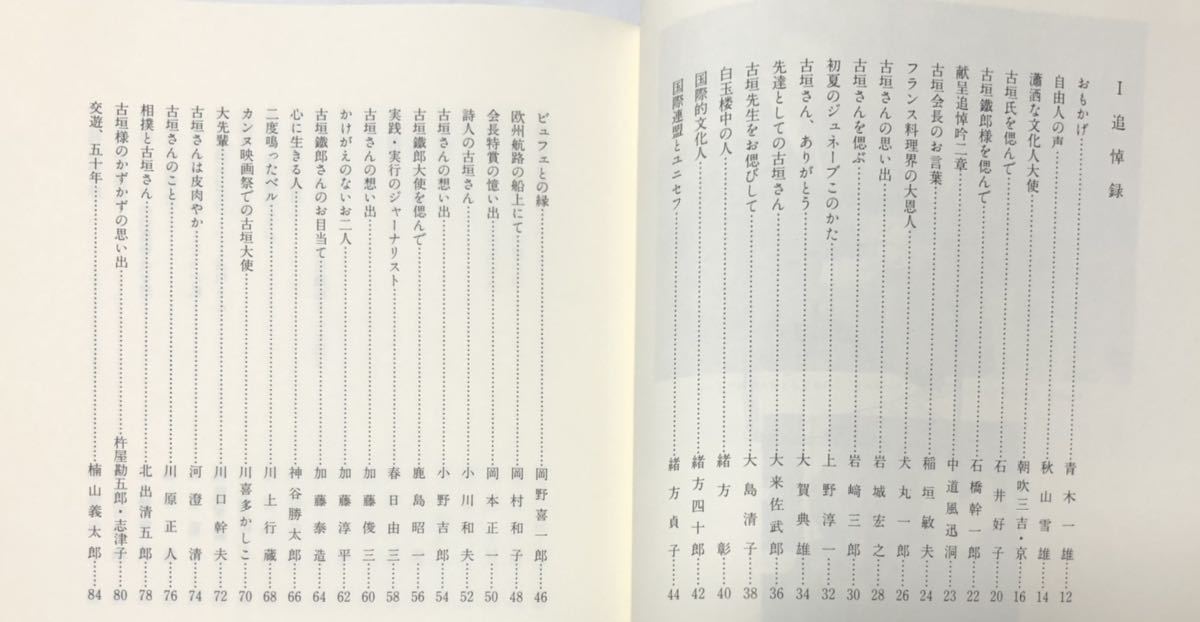 I 追悼録
おもかげ……青木一雄……12
自由人の声……秋山雪雄……14
瀟洒な文化人大使……朝吹三吉・京……16
古垣氏を偲んで……石井好子……20
古垣鐵郎様を偲んで……石橋幹一郎……22
献呈追悼吟二章……中道風迅洞……23
古垣会長のお言葉……稲垣敏夫……24
フランス料理界の大恩人……犬丸一郎……26
古垣さんの思い出……岩城宏之……28
古垣さんを偲ぶ……岩﨑三郎……30
初夏のジュネーブこのかた……上野淳一……32
古垣さん、ありがとう……大賀典雄……34
先達としての古垣さん……大来佐武郎……36
古垣先生をお偲びして……大島清子……38
白玉楼中の人……緒方彰……40
国際的文化人……緒方四十郎……42
国際連盟とユニセフ……緒方貞子……44
ビュフェとの縁……岡野喜一郎……46
欧州航路の船上にて……岡村和子……48
会長特賞の憶い出……岡本正一……50
詩人の古垣さん……小川和夫……52
古垣さんの想い出……小野吉郎……54
古垣鐵郎大使を偲んで……鹿島昭一……56
実践・実行のジャーナリスト……春日由三……58
古垣さんの想い出……加藤俊三……60
かけがえのないお二人……加藤淳平……62
古垣鐵郎さんのお目当て……加藤泰造……64
心に生きる人……神谷勝太郎……66
二度鳴ったベル……川上行蔵……68
カンヌ映画祭での古垣大使……川喜多かしこ……70
大先輩……川口幹夫……72
古垣さんは皮肉やか……河澄清……74
古垣さんのこと……川原正人……76
相撲と古垣さん……北出清五郎……78
古垣様のかずかずの思い出……杵屋勘五郎・志津子……80
交遊、五十年……楠山義太郎……84